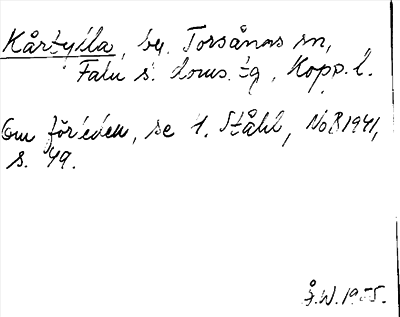 Kårtylla, by. Torsångs sn,
Falu s. doms. tg, Kopp. l.
Om förleden, se I. Ståhl, NoB 1941,
s. 49.
Å.W. 1955.